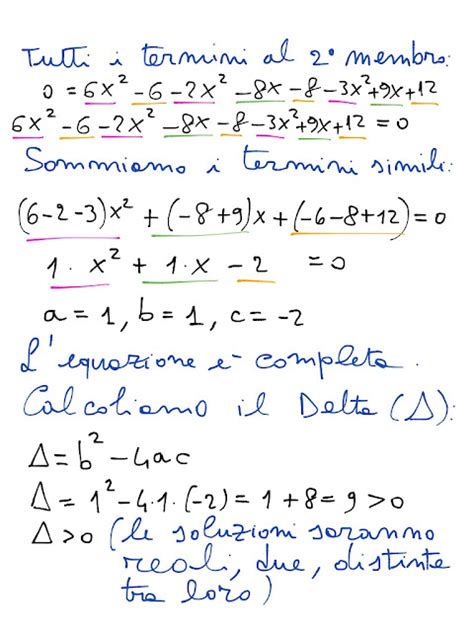 Tutti i termini al 2° membro:
0 = 6x² - 6 - 2x² - 8x - 8 - 3x² + 9x + 12
6x² - 6 - 2x² - 8x - 8 - 3x² + 9x + 12 = 0
Sommiamo i termini simili:
(6-2-3)x² + (-8+9)x + (-6-8+12) = 0
1· x² + 1·x - 2 = 0
a = 1, b = 1, c = -2
L'equazione e' completa.
Calcoliamo il Delta (Δ):
Δ = b² - 4ac
Δ = 1² - 4·1·(-2) = 1 + 8 = 9 > 0
Δ > 0 (le soluzioni saranno
reali, due, distinte
tra loro)